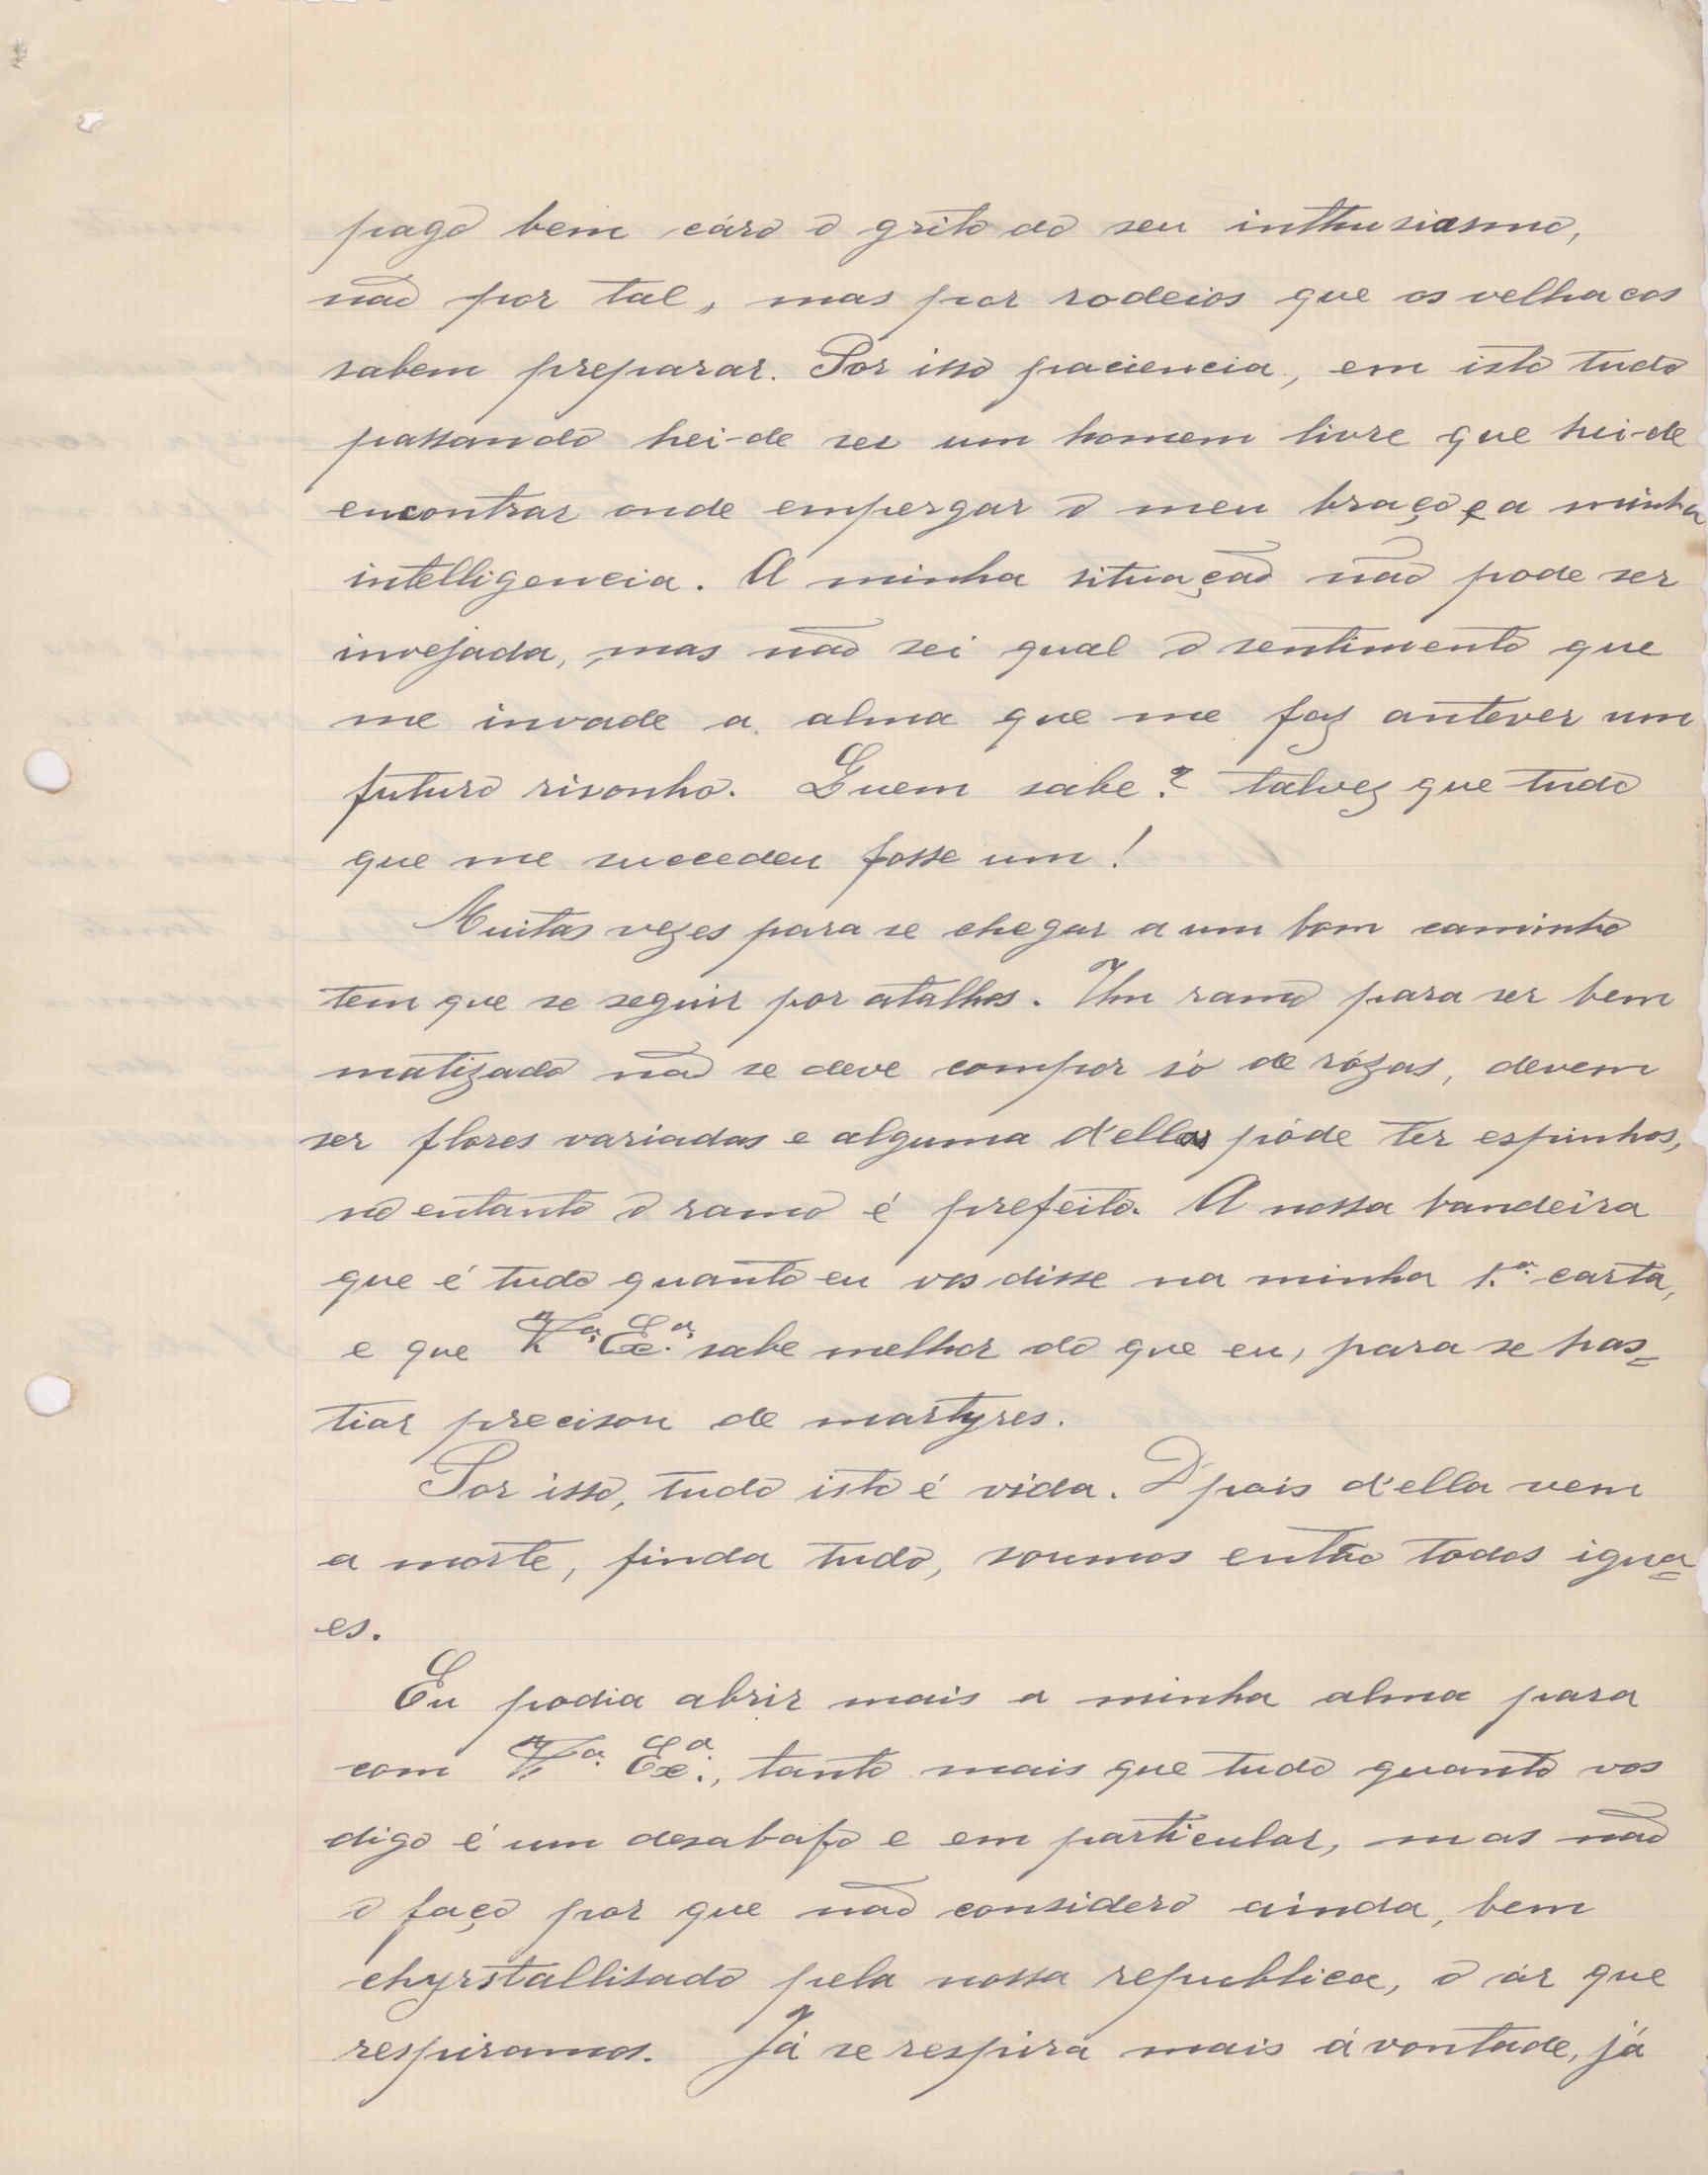 pago bem cáro o grito do seu inthusiasmo,
não por tal, mas por rodeios que os velhacos
sabem preparar. Por isso paciencia, em isto tudo
passando hei-de ser um homem livre que hei-de
encontrar onde empergar o meu braço e a minha
intelligencia. A minha situação não pode ser
invejada, mas não sei qual o sentimento que
me invade a alma que me faz antever um
futuro risonho. Quem sabe? talvez que tudo
que me succedeu fosse um!
Muitas vezes para se chegar a um bom caminho
tem que se seguir por atalhos. Um ramo para ser bem
matizado não se deve compor só de rózas, devem
ser flores variadas e alguma d'ellas póde ter espinhos,
no entanto o ramo é prefeito. A nossa bandeira
que é tudo quanto eu vos disse na minha 1.ª carta,
e que V.ª Ex.ª sabe melhor do que eu, para se has=
tiar precisou de martyres.
Por isso, tudo isto é vida. D'pois d'ella vem
a morte, finda tudo, soumos então todos igua=
es.
Eu podia abrir mais a minha alma para
com V.ª Ex.ª, tanto mais que tudo quanto vos
digo é um desabafo e em particular, mas não
o faço por que não considero ainda, bem
chyrstallisado pela nossa republica, o ár que
respiramos. Já se respira mais á vontade, já